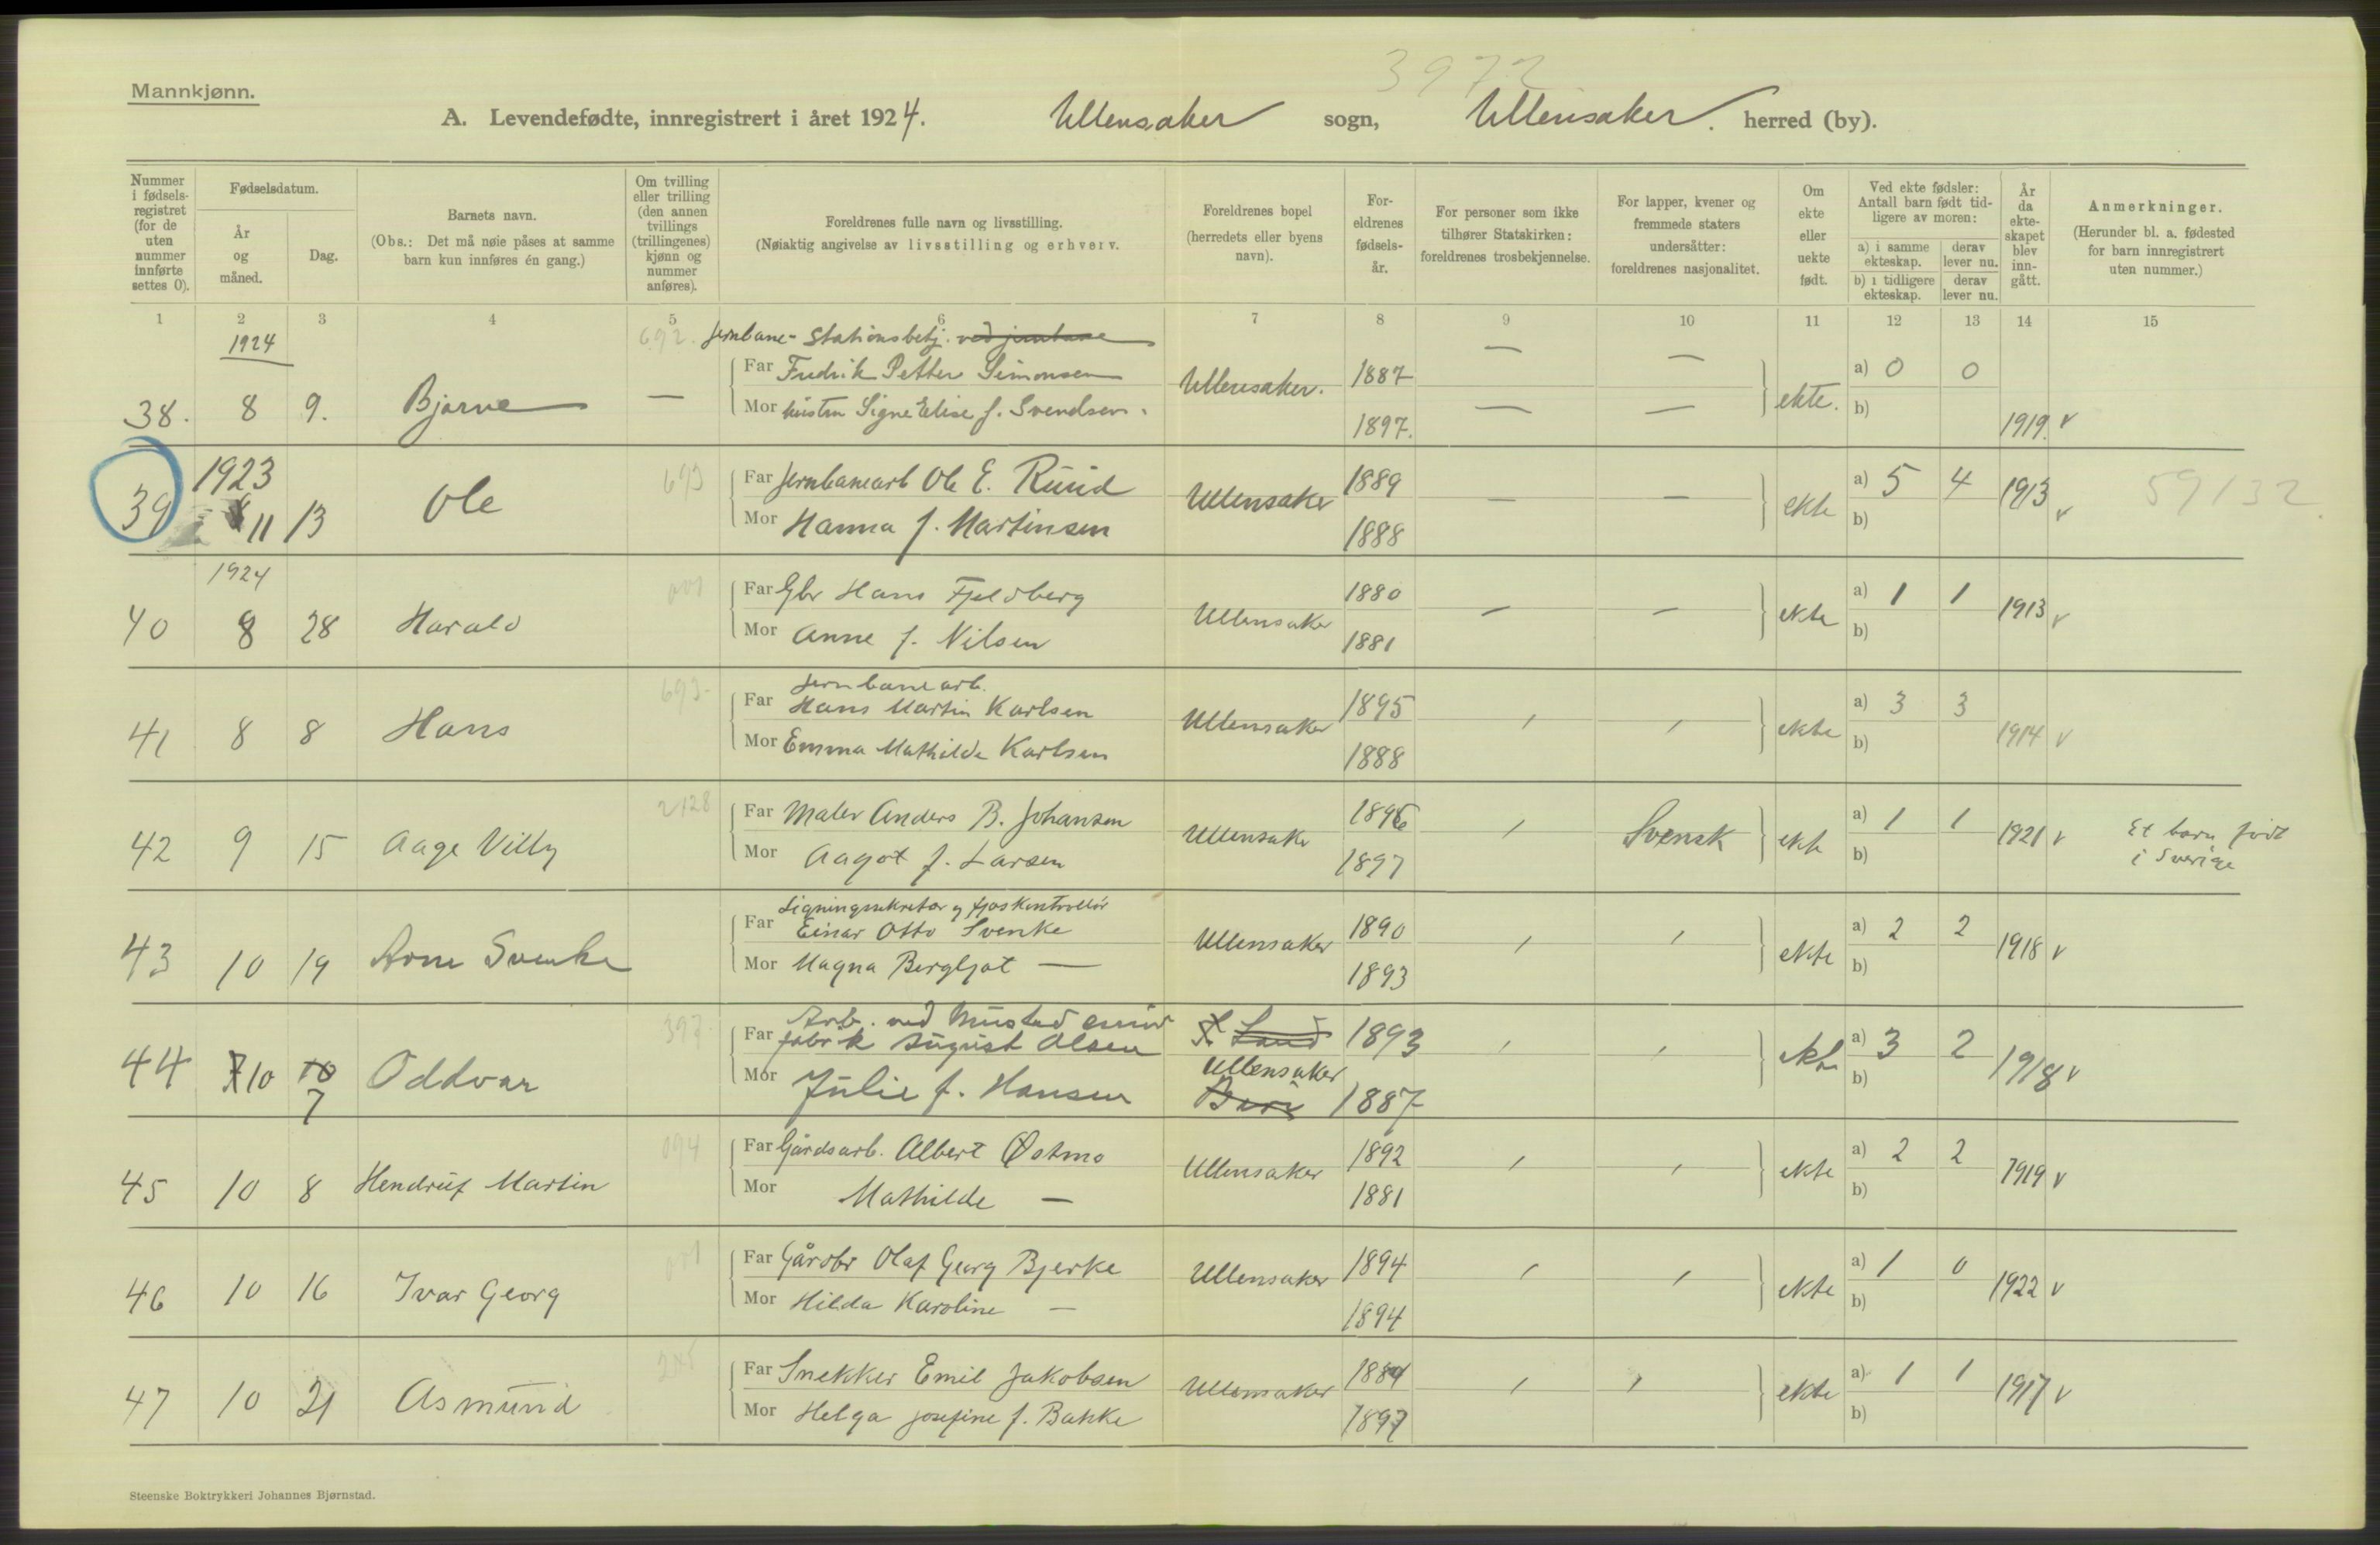 3972
Mannkjønn.
A. Levendefødte, innregistrert i året 1924. Ullensaker sogn, Ullensaker. herred (by).
Nummer i fødselsregistret (for de uten nummer innførte settes 0).
Fødselsdatum.
År og måned.
Dag.
Barnets navn.
(Obs.: Det må nøie påses at samme barn kun innføres én gang.)
Om tvilling eller trilling (den annen tvillings (trillingenes) kjønn og nummer anføres).
Foreldrenes fulle navn og livsstilling.
(Nøiaktig angivelse av livsstilling og erhverv.
Foreldrenes bopel (herredets eller byens navn).
Foreldrenes fødselsår.
For personer som ikke tilhører Statskirken: foreldrenes trosbekjennelse.
For lapper, kvener og fremmede staters undersåtter: foreldrenes nasjonalitet.
Om ekte eller uekte født.
Ved ekte fødsler: Antall barn født tidligere av moren:
a) i samme ekteskap. derav lever nu.
b) i tidligere ekteskap. derav lever nu.
År da ekteskapet blev inngått.
Anmerkninger.
(Herunder bl. a. fødested for barn innregistrert uten nummer.)
1 2 3 4 5 6 7 8 9 10 11 12 13 14 15
1924 692. Jernbane- Stationsbetj. ved
38. 8 9. Bjarne — Far Fredrik Petter Simonsen Ullensaker. 1887 — — ekte. a) 0 0
Mor hustru Signe Elise f. Svendsen. 1897. — — b) 1919. v
39 1923 11 13 Ole 693 Far Jernbanearb Ole E. Ruud Ullensaker 1889 — — ekte a) 5 4 1913 v 59132
Mor Hanna f. Martinsen 1888 b)
1924
40 8 28 Harald 001 Far Gbr Hans Fjeldberg Ullensaker 1880 — — ekte a) 1 1 1913 v
Mor Anne f. Nilsen 1881 b)
41 8 8 Hans 693- Far Jernbanearb. Hans Martin Karlsen Ullensaker 1895 ekte a) 3 3 1914 v
Mor Emma Mathilde Karlsen 1888 b)
42 9 15 Aage Villy 2128 Far Maler Anders B. Johansen Ullensaker 1896 Svensk ekte a) 1 1 1921 v Et barn født i Sverige
Mor Aagot f. Larsen 1897 b)
43 10 19 Arne Svenke Far Ligningssekretær og Einar Otto Svenke Ullensaker 1890 ekte a) 2 2 1918 v
Mor Magna Bergljot — 1893 b)
44 10 10 7 Oddvar 397. Far Arb. ved Mustad fabrik August Olsen Land Ullensaker 1893 ekte a) 3 2 1918 v
Mor Julie f. Hansen 1887 b)
45 10 8 Hendrif Martin 094 Far Gårdsarb. Albert Østmo Ullensaker 1892 ekte a) 2 2 1919 v
Mor Mathilde — 1881 b)
46 10 16 Ivar Georg 001 Far Gårdbr Olaf Georg Bjerke Ullensaker 1894 ekte a) 1 0 1922 v
Mor Hilda Karoline — 1894 b)
47 10 21 Asmund Far Snekker Emil Jakobsen Ullensaker 1884 ekte a) 1 1 1917 v
Mor Helga Josefine f. Bakke 1897 b)
Steenske Boktrykkeri Johannes Bjørnstad.